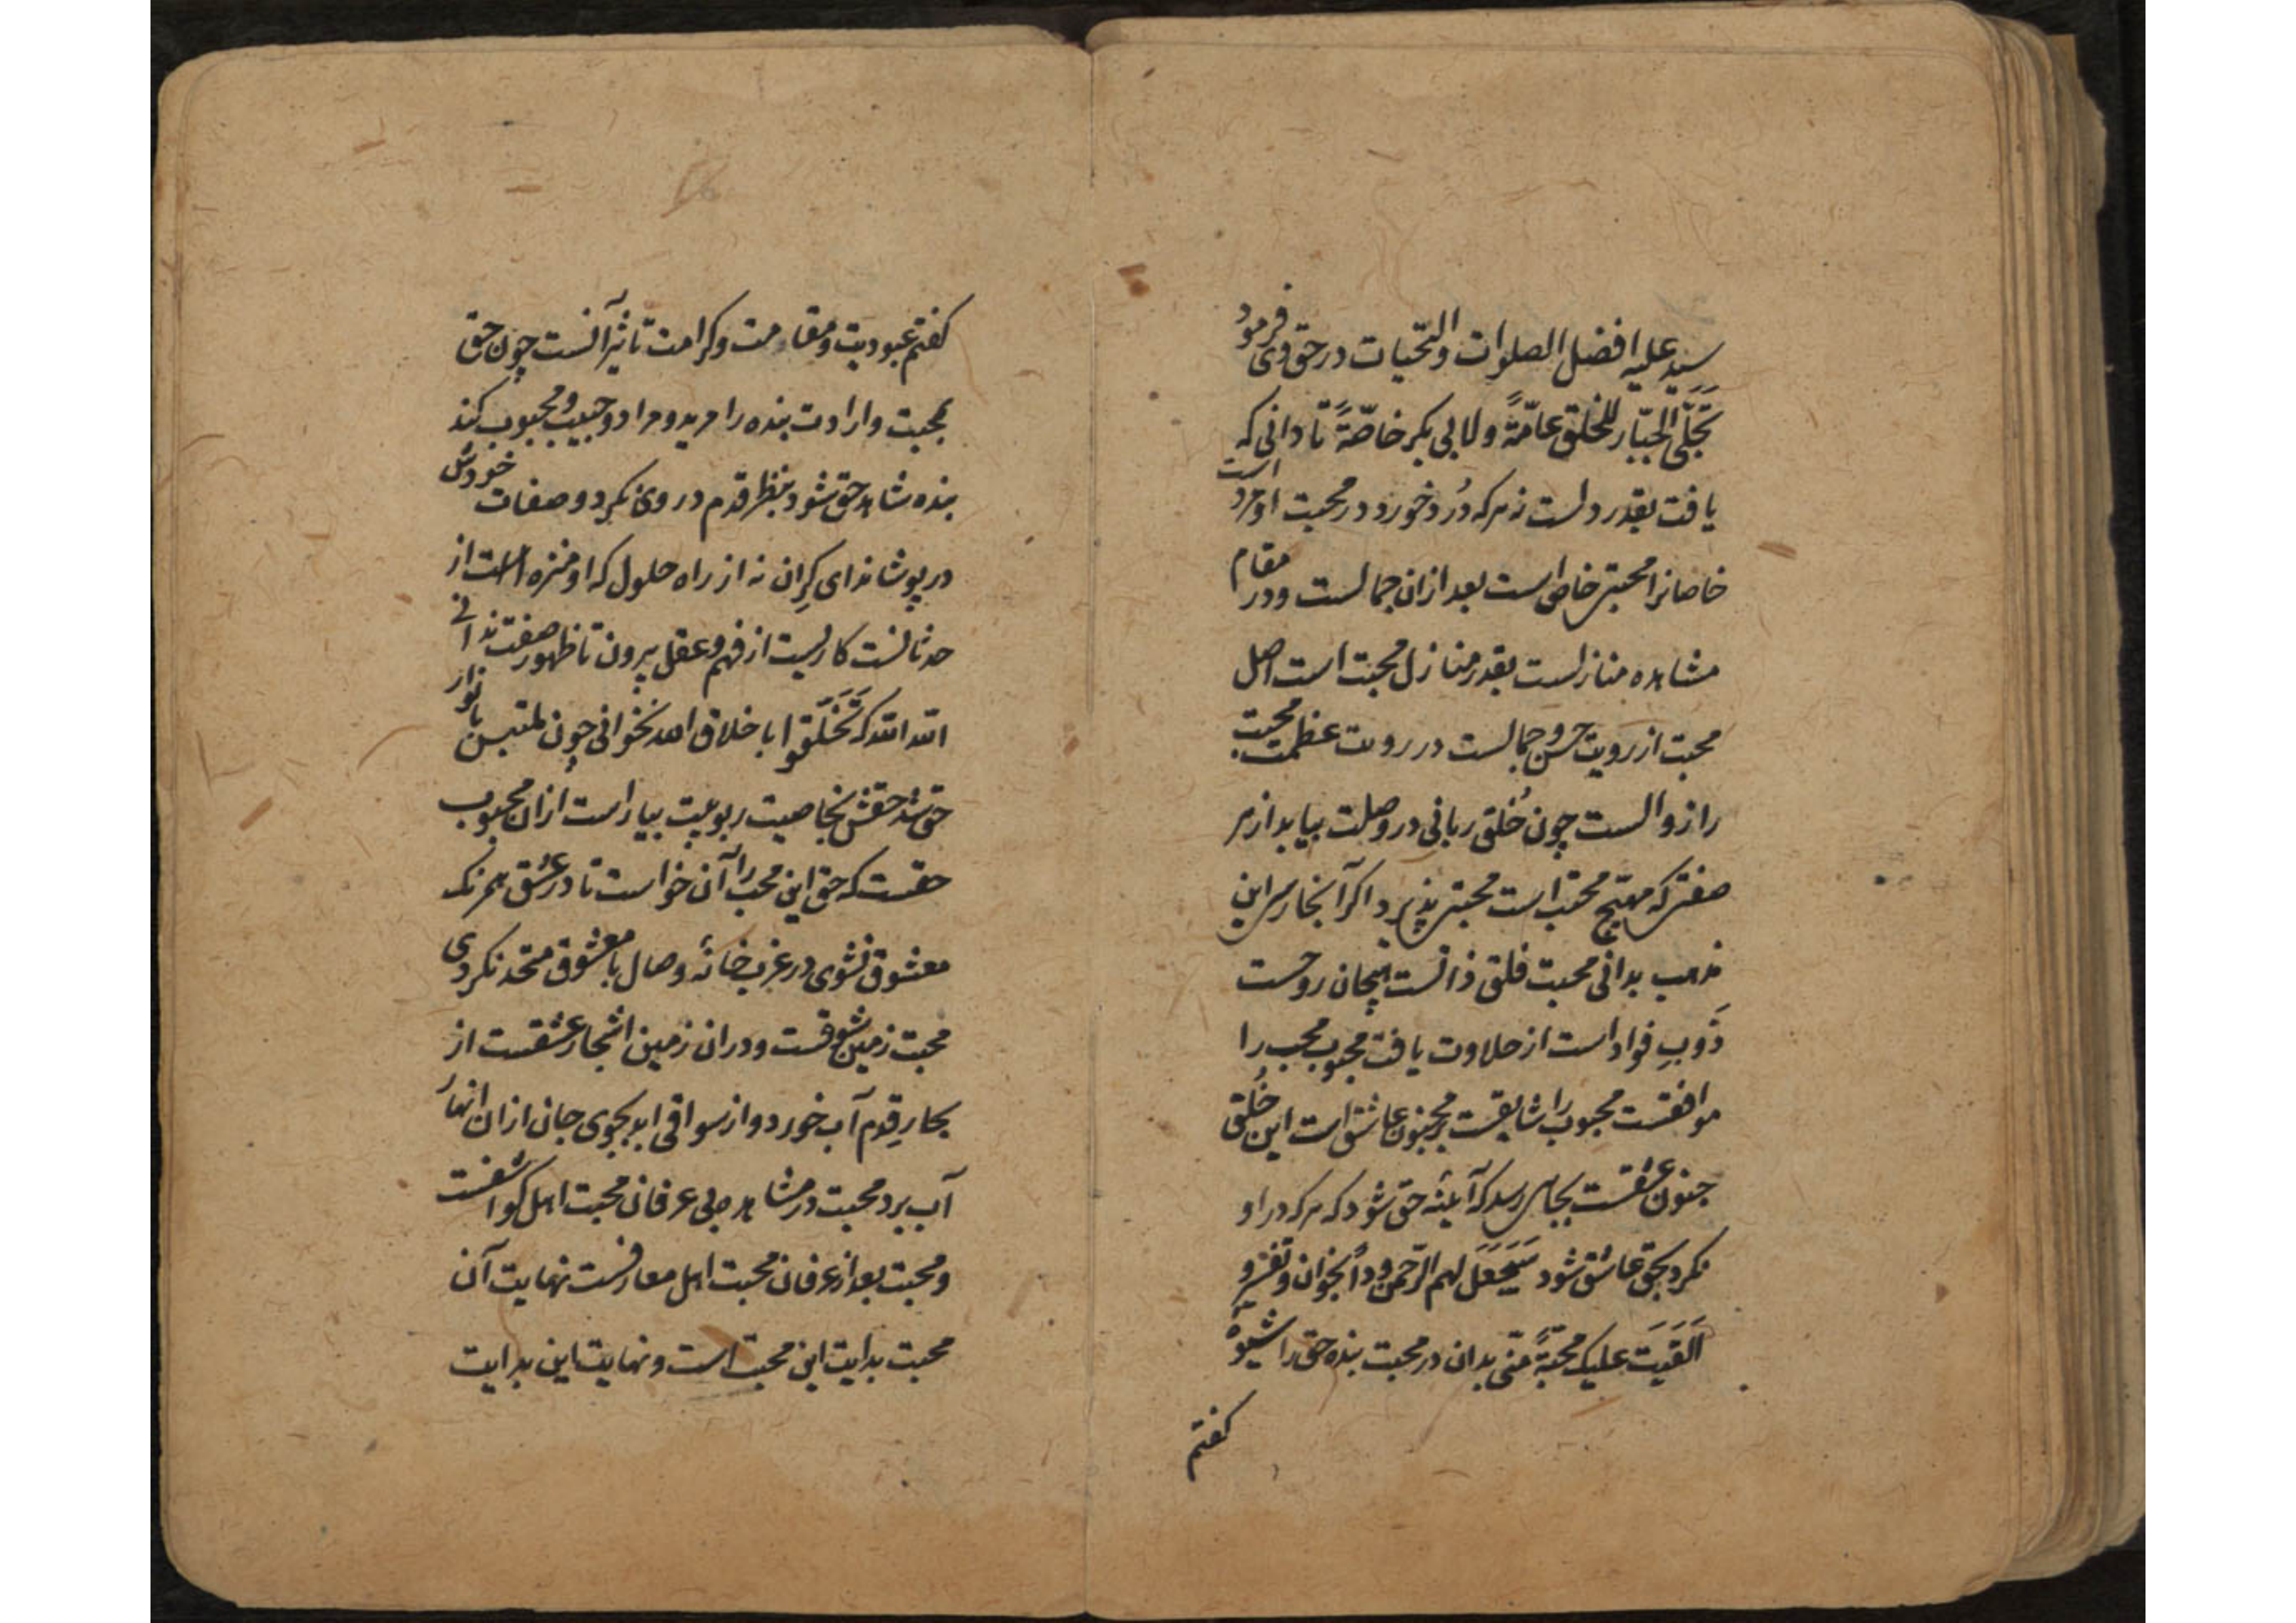 سید علیه افضل الصلوات والتحیات در حق وی فرمود
تَجَلَّی الجبّار للخلق عامّةً ولابی بکر خاصّةً تا دانی که
یافت بقدر دلست نه هرکه دُرد خورد در محبت او مرد است
خاصانرا محبتی خاص است بعد ازان جمالست ودر مقام
مشاهده منازلست بقدر منازل محبت است اصل
محبت از رویت حسن و جمالست در رویت عظمت محبت
را زوالست چون خُلق ربانی در وصلت بیابد از هر
صفتی که مهیّج محبت است محبتی پذیرد اگر آنجا رسی این
مذهب بدانی محبت قلق ذاتست هیجان روحست
ذَوبِ فواد است از حلاوت یافت محبوب محب را
موافقست محبوب را شایقست بر جنون عاشق است این خُلقی
جنون عشقست بجایی رسد که آیینه حق شود که هرکه در او
نکرد بحق عاشق شود سَیَجعَلُ لهم الرّحمن وداً بخوان و تفسیر و
اَلقَیتَ علیک محبّةً منّی بدان در محبت بنده حق را شیوه
کفتم
کفتم عبودیت و مقامت وکرامت تاثیر آنست چون حق
بمحبت وارادت بنده را مرید و مراد و حبیب و محبوب کند
بنده شاهد حق شود بنظر قدم در وی نکرد و صفات خودش
در پوشاند ای کران نه از راه حلول که او منزه است از
حدثانست کاریست از فهم و عقل بیرون تا ظهور صفت ندانی
الله الله که تَخَلَّقوا باخلاق الله نخوانی چون ملتبس بانوار
حق شد حقش بخاصیت ربوبیت بیاراست ازان محبوب
حقست که حق این محب را آن خواست تا در عشق همرنک
معشوق نشوی در عزبخانهٔ وصال با معشوق متحد نکردی
محبت زمین شوقست و دران زمین اشجار عشقست از
بحارِ قِدم آب خورد و از سواقی ابد بجوی جان ازان انهار
آب برد محبت در مشاهده بی عرفان محبت اهل کواشفست
و محبت بعد از عرفان محبت اهل معارفست نهایت آن
محبت بدایت این محبت است و نهایت این بدایت